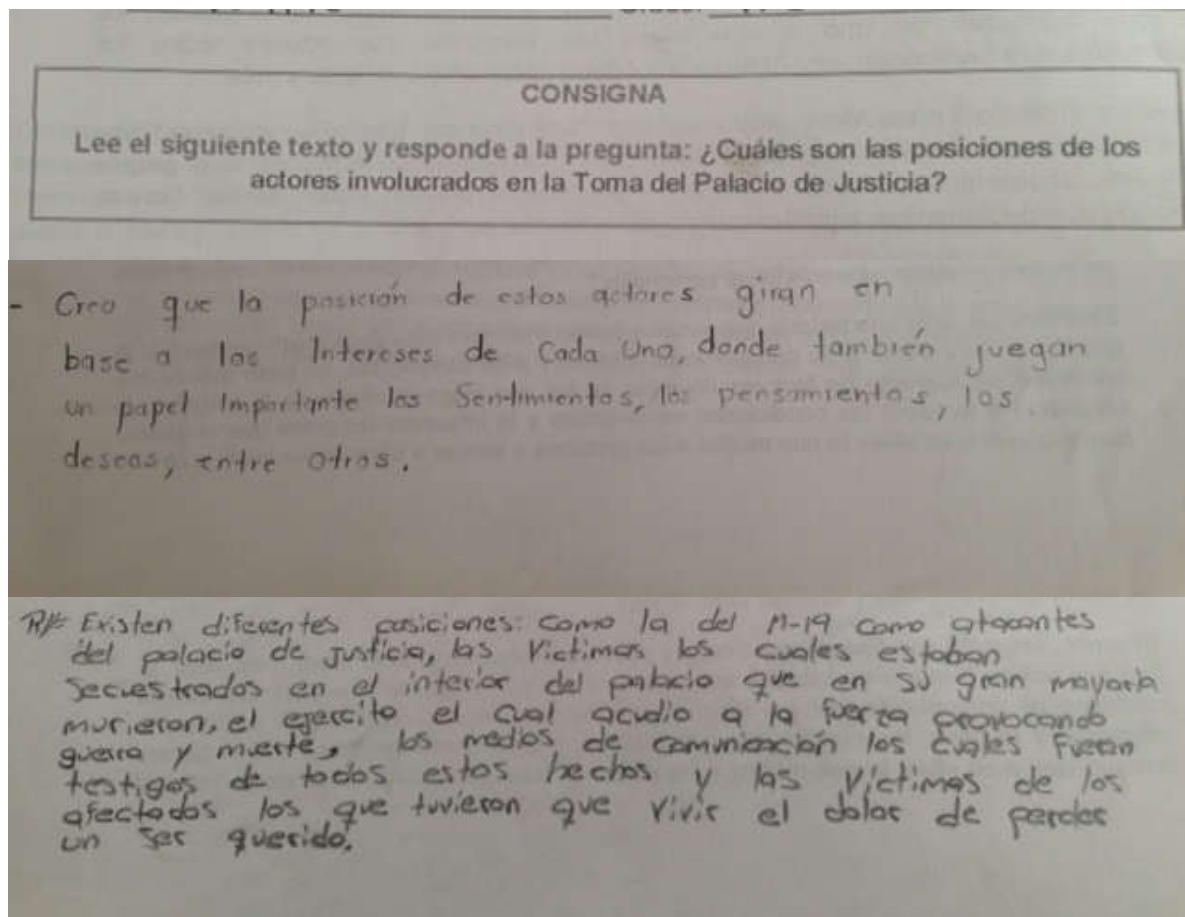 CONSIGNA
Lee el siguiente texto y responde a la pregunta: ¿Cuáles son las posiciones de los
actores involucrados en la Toma del Palacio de Justicia?
- Creo que la posición de estos actores giran en
base a los Intereses de Cada Uno, donde también juegan
un papel Importante los Sentimientos, los pensamientos, los
deseos, entre otros.
R/= Existen diferentes posiciones: como la del M-19 como atacantes
del palacio de justicia, las Victimas los cuales estaban
secuestrados en el interior del palacio que en su gran mayoría
murieron, el ejercito el cual acudio a la fuerza provocando
guerra y muerte, los medios de comunicación los cuales fueron
testigos de todos estos hechos y las víctimas de los
afectados los que tuvieron que vivir el dolor de perder
un ser querido.